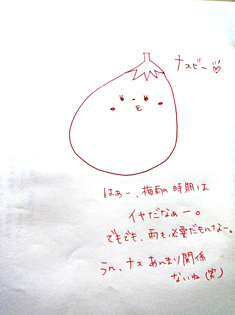 ナスビー♡
はぁー、梅雨の時期は
イヤだなぁー。
でもでも、雨も必要だもんなー。
うん、ナス あんまり関係
ないね(笑)